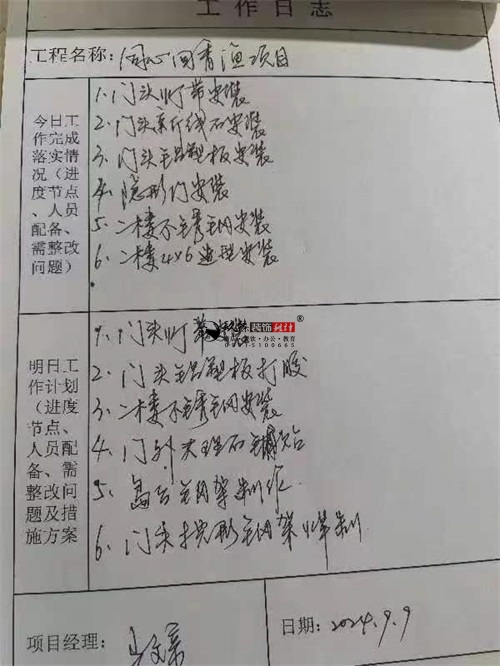 工作日志
工程名称：同心回香渔项目
今日工作完成落实情况（进度节点、人员配备、需整改问题）
1. 门头灯带安装
2. 门头亲行线石安装
3. 门头铝塑板安装
4. 隐形门安装
5. 二楼不锈钢安装
6. 二楼4x6造型安装
明日工作计划（进度节点、人员配备、需整改问题及措施方案
1. 门头灯带安装
装饰设计®
餐饮·办公·教育
2. 门头铝塑板打胶
3. 二楼不锈钢安装
4. 门外大理石铺贴
5. 岛台钢架制作
6. 门头拱形钢架焊制
项目经理：
日期：2024.9.9